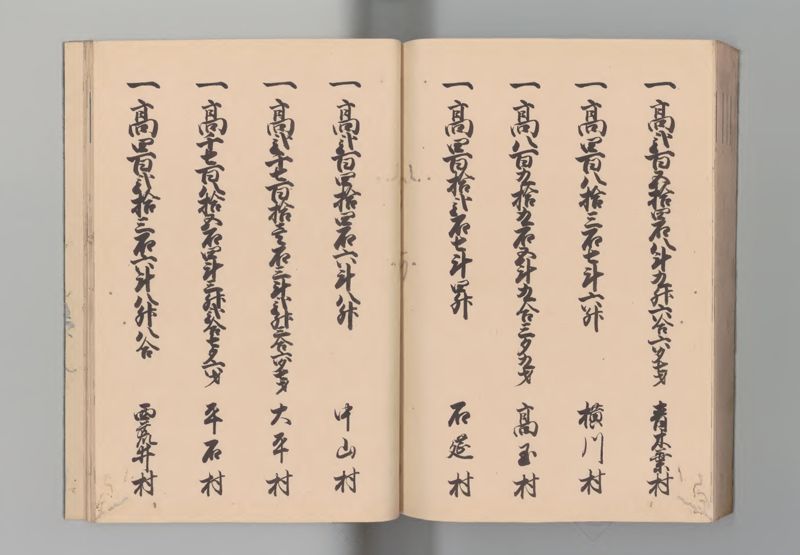 一高弐百五拾四石八斗九升六合六夕七才 青木葉村
一高四百八拾三石七斗六升 横川村
一高八百九拾九石五斗九合三夕九才 高玉村
一高四百拾弐石七斗四升 石莚村
一高弐百四拾四石六斗八升 中山村
一高弐千七百拾壱石三斗弐升三合六夕七才 大平村
一高千七百八拾五石四斗三升弐合七夕六才 平石村
一高四百弐拾三石六斗八升八合 西荒井村